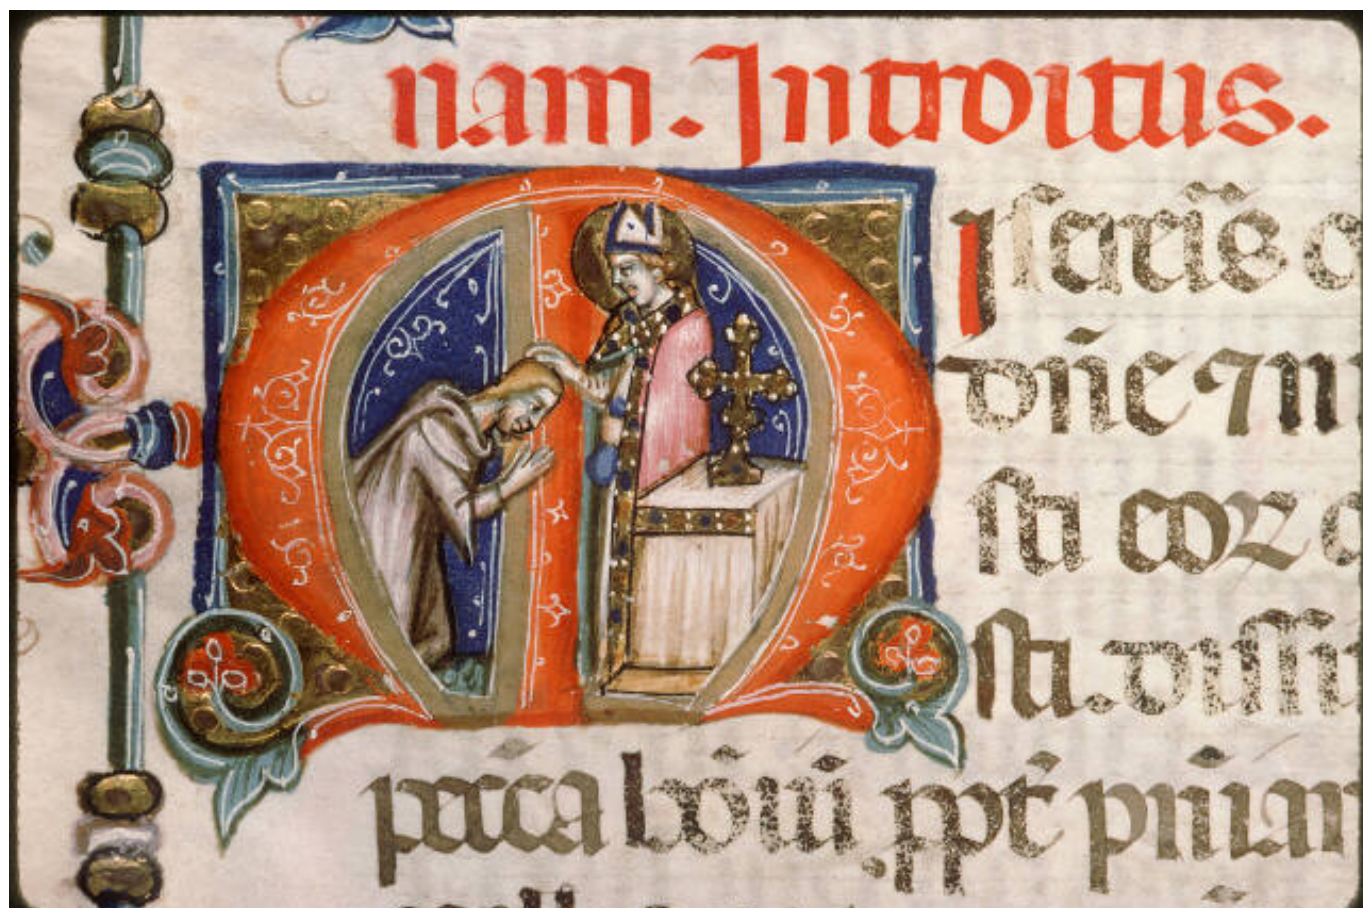 nam. Introitus.
Misereris o
dñe ⁊ n
sti eoꝝ
sti. dissi
pecca hoīū ꝓpt pniaꝫ